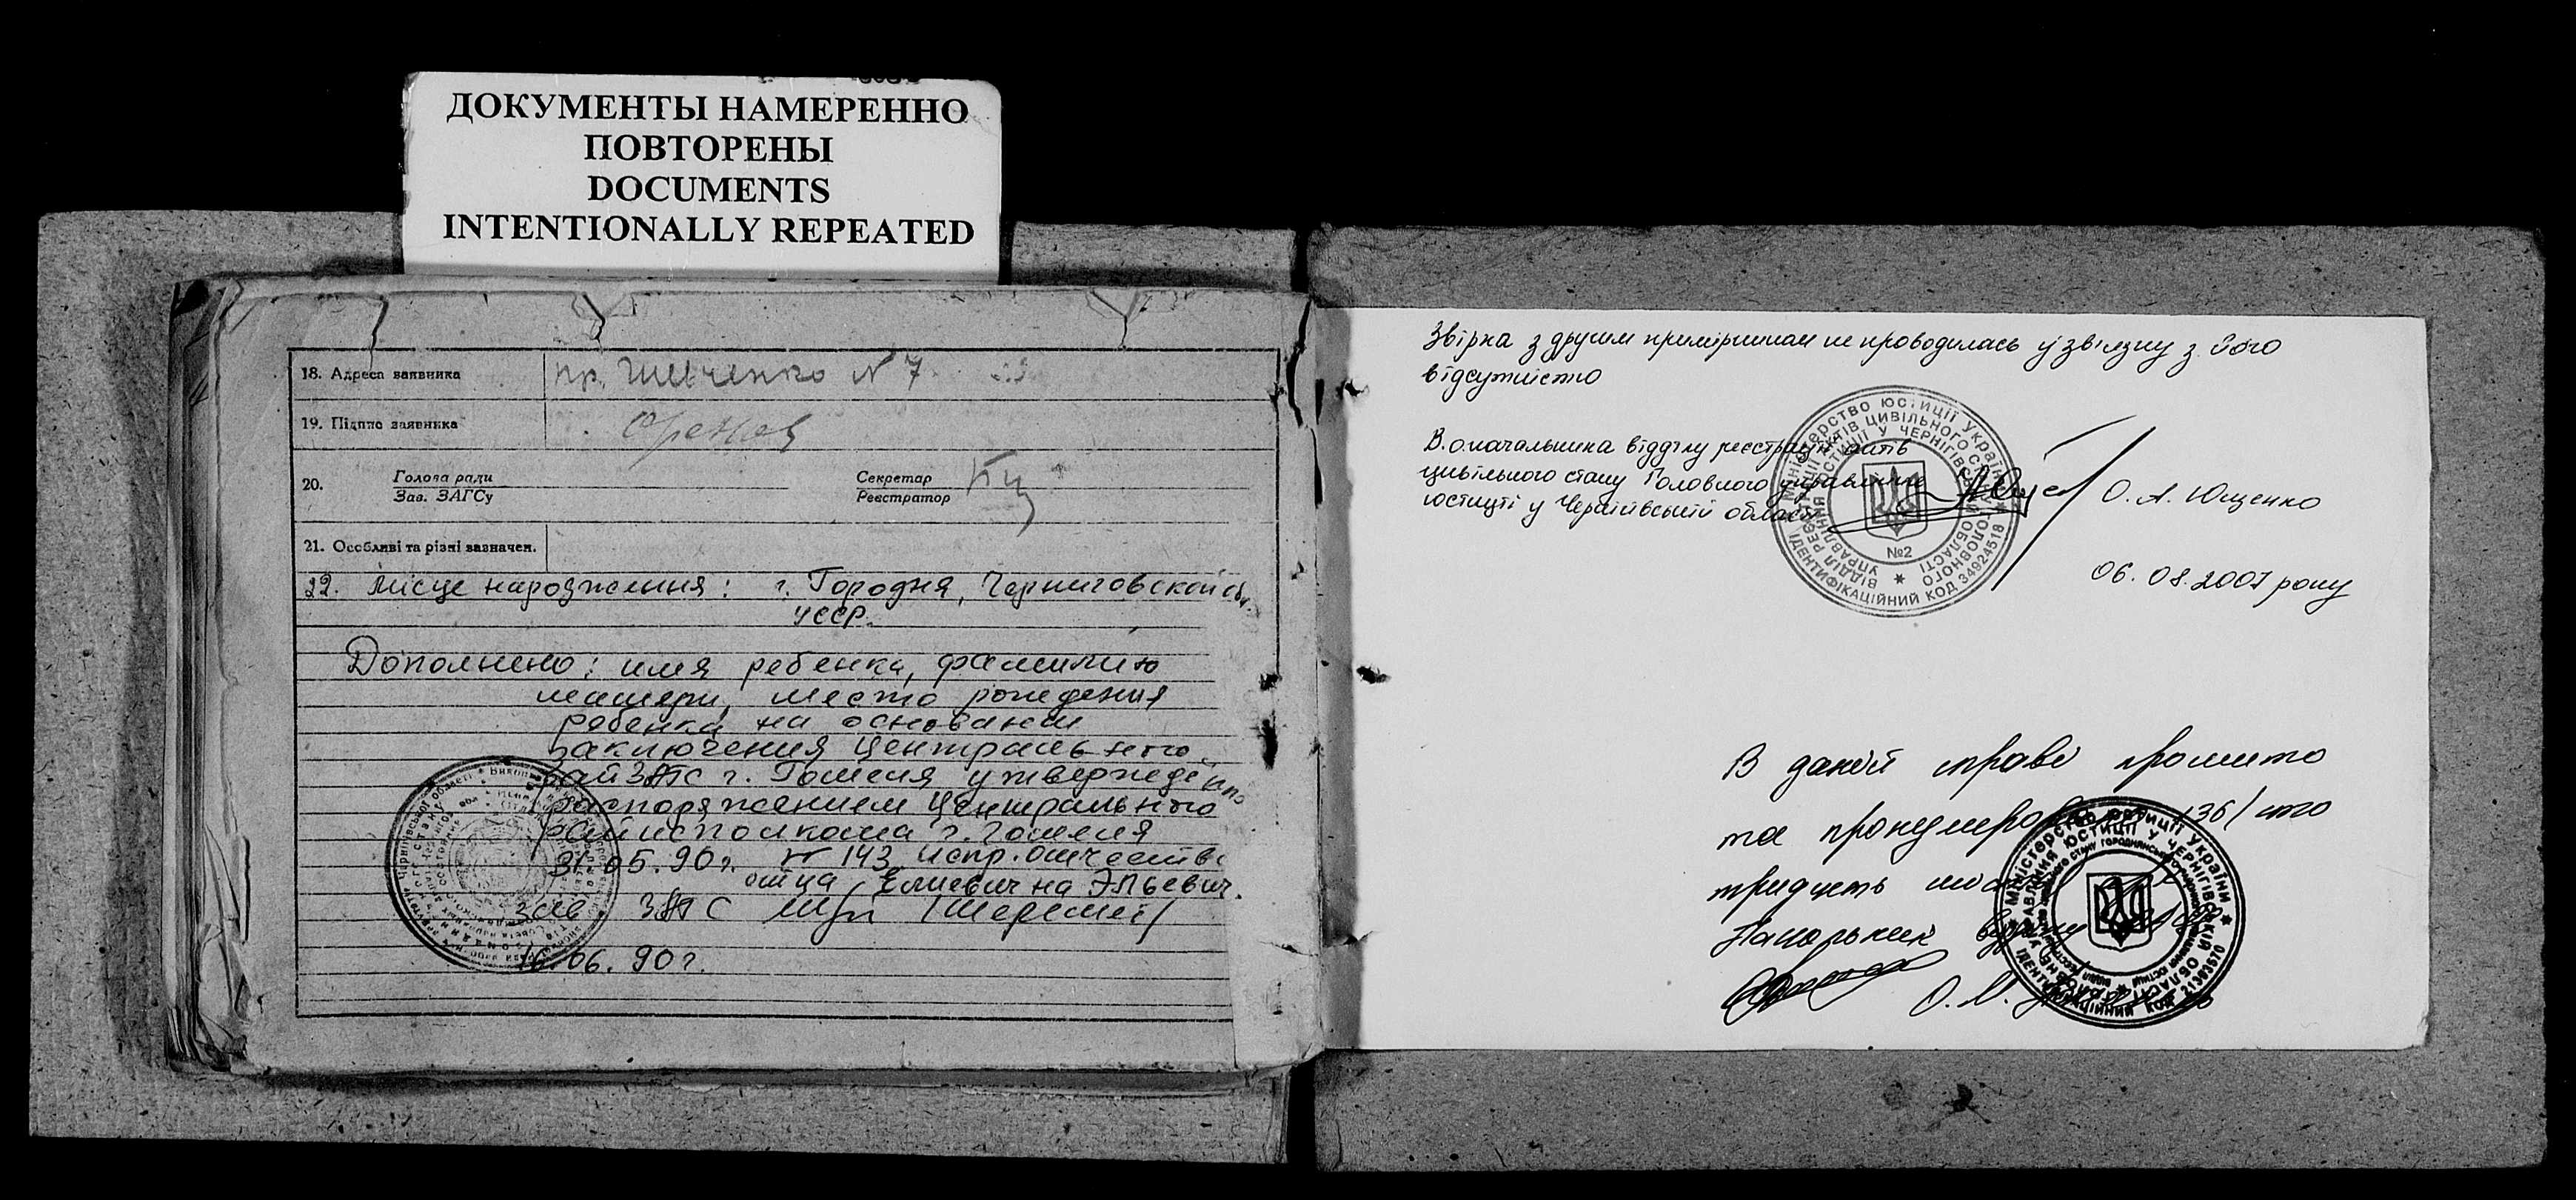 ДОКУМЕНТЫ НАМЕРЕННО
ПОВТОРЕНЫ
DOCUMENTS
INTENTIONALLY REPEATED
18. Адреса заявника пр. Шевченко N 7
19. Підпис заявника
20. Голова ради
Зав. ЗАГСу
Секретар
Реєстратор
21. Особливі та різні зазначен.
22. Місце народження: г. Городня, Черниговской об.
УССР.
Дополнено: имя ребенка, фамилию
матери, место рождения
ребенка на основании
заключения Центрального
райЗАГС г. Гомеля утвержден
распоряжением Центрального
райисполкома г. Гомеля
31.05.90г. N 143 Испр. отчество
отца Елиевич на Эльевич.
Зав ЗАГС /Шеремет/
06.90г.
Звірка з другим примірником не проводилась у зв'язку з його
відсутністю
В.о. начальника відділу реєстрації актів
цивільного стану Головного управління
юстиції у Чернігівській області
О. А. Ющенко
06.08.2007 року
МІНІСТЕРСТВО ЮСТИЦІЇ УКРАЇНИ
ІДЕНТИФІКАЦІЙНИЙ КОД 34924518
№2
В даній справі прошито
та пронумеровано 136/сто
тридцять
Начальник відділу
О. М.
МІНІСТЕРСТВО ЮСТИЦІЇ УКРАЇНИ
ІДЕНТИФІКАЦІЙНИЙ КОД 21393670